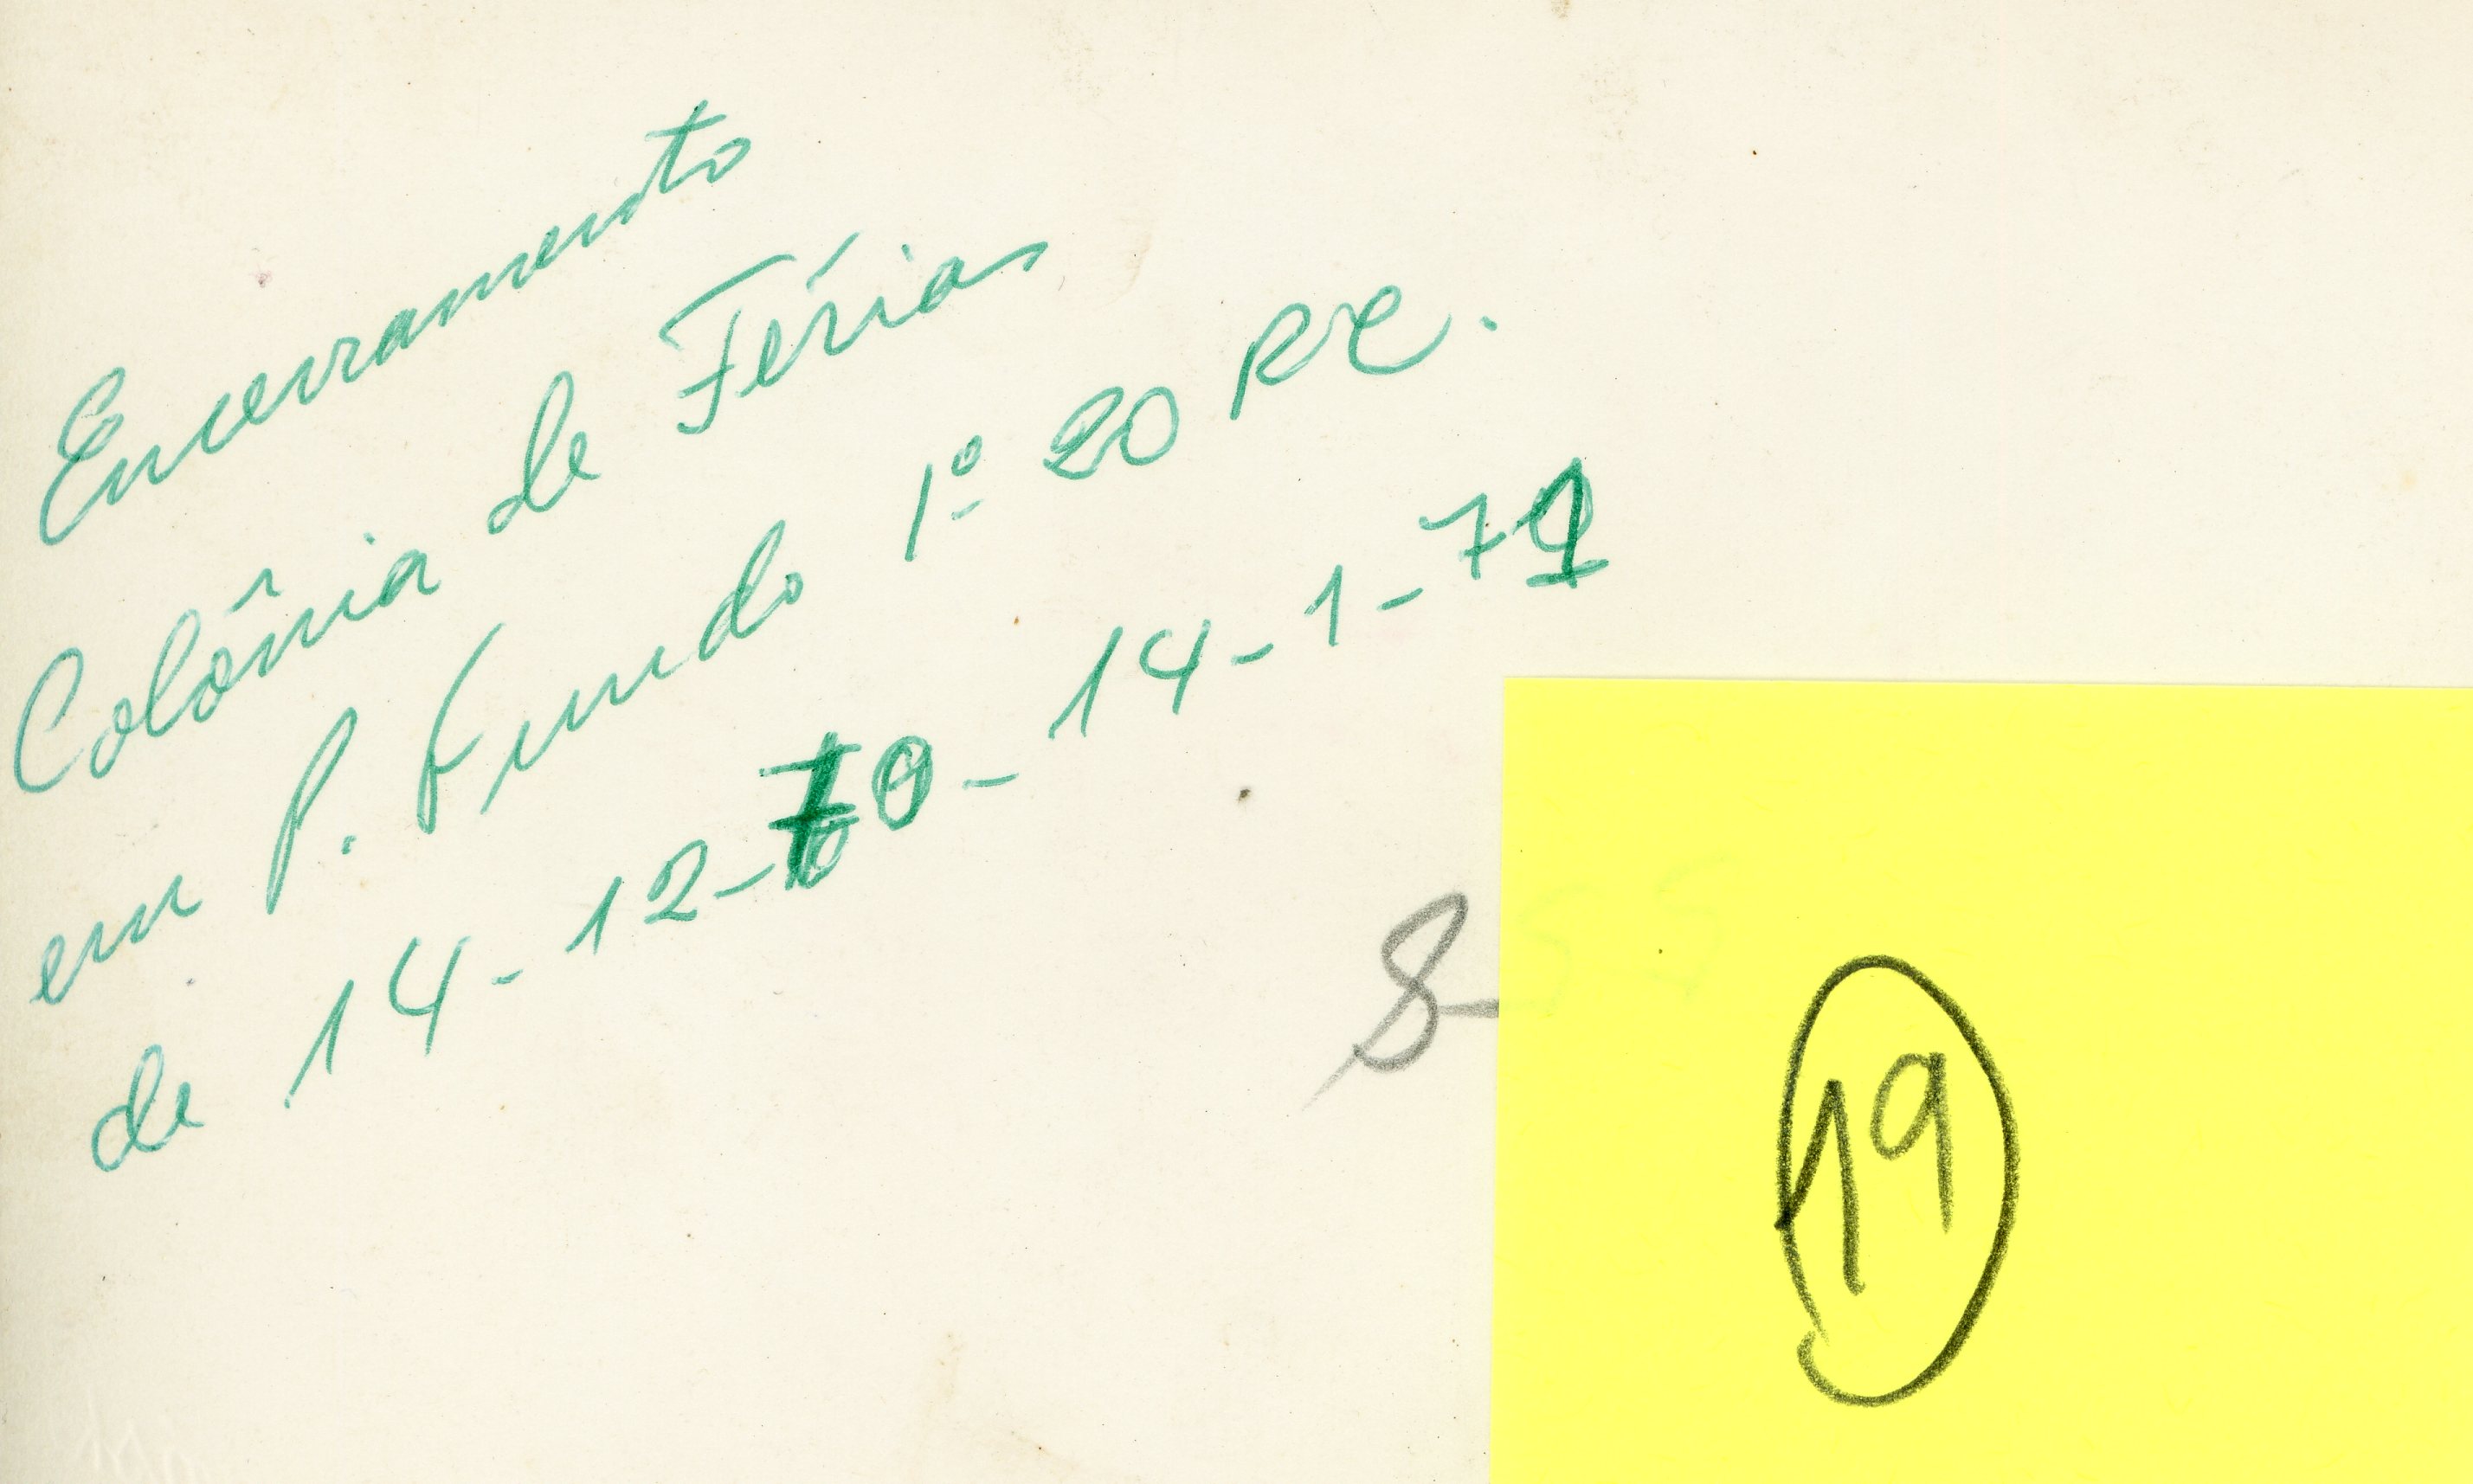 Encerramento
Colônia de Férias
em P. Fundo 1º 20 RC.
de 14-12-70 - 14-1-71
8-
19